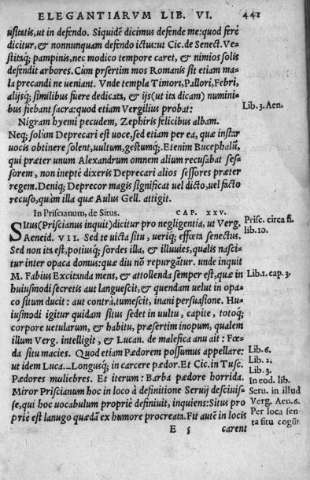 ELEGANTIARVM LIB. VI. 441
ustitatis, ut in defendo. Siquidē dicimus defende me: quod ferè
dicitur, & nonnunquam defendo ictus: ut Cic. de Senect. Ve-
stitusq; pampinis, nec modico tempore caret, & nimios solis
defendit arbores. Cùm prsertim mos Romanis sit etiam ma-
la precandi ne ueniant. Vnde templa Timori, Pallori, Febri,
alijsq; similibus fuere dedicata, & ijs (ut ita dicam) numini-
bus fiebant sacra: quod etiam Vergilius probat: Lib. 3. Aen.
Nigram hyemi pecudem, Zephiris felicibus albam.
Neq; solùm Deprecari est uoce, sed etiam per ea, quæ instar
uocis obtinere solent, uultum, gestumq́;. Etenim Bucephalū,
qui præter unum Alexandrum omnem alium recusabat ses-
sorem, non ineptè dixeris Deprecari alios sessores præter
regem. Deniq; Deprecor magis significat uel dicto, uel facto
recuso, quàm illa quæ Aulus Gell. attigit.
In Priscianum, de Situs. CAP. XXV.
SItus (Priscianus inquit) dicitur pro negligentia, ut Verg. Prisc. circa fi.
Aeneid. VII. Sed te uicta situ, ueriq; effœta senectus. lib. 10.
Sed non ita est, potiusq; sordes illa, & illuuies, qualis nasci-
tur inter opaca domus: quæ diu nō repurgātur. unde inquit
M. Fabius Excitanda mens, & attollenda semper est, quæ in Lib. 1. cap. 3.
huiusmodi secretis aut languescit, & quendam uelut in opa-
co situm ducit: aut contrà, tumescit, inani persuasione. Hu-
iusmodi igitur quidam situs sedet in uultu, capite, totoq́;
corpore uetularum, & habitu, præsertim inopum, qualem
illum Verg. intelligit, & Lucan. de malefica anu ait: Fœ-
da situ macies. Quod etiam Pædorem possumus appellare: Lib. 6.
ut idem Luca... Longusq; in carcere pædor. Et Cic. in Tusc. Lib. 2.
Pædores muliebres. Et iterum: Barba pædore horrida. Lib. 3. In eod. lib.
Miror Priscianum hoc in loco à definitione Seruij desciuis- Seru. in illud
se, qui hoc uocabulum propriè definiuit, inquiens: Situs pro Verg. Aen. 6.
priè est lanugo quædā ex humore procreata. Fit autē in locis Per loca sen
ta situ cogūt
E 5 carent